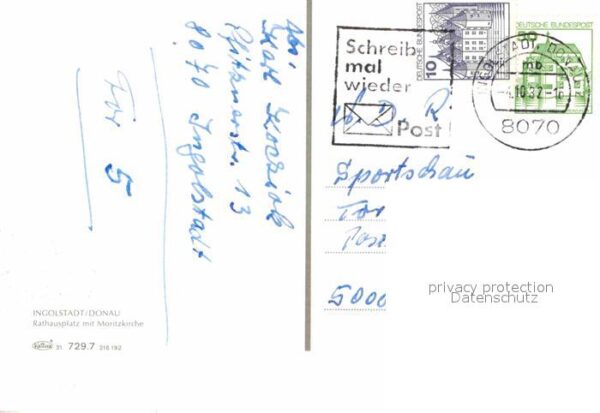 Abs.
Karl Koziol
Pfitznerstr. 13
8070 Ingolstadt
Tor
5
INGOLSTADT/DONAU
Rathausplatz mit Moritzkirche
31 729.7 216 192
Schreib
mal
wieder
Post
DEUTSCHE BUNDESPOST
10
DEUTSCHE BUNDESPOST
INGOLSTADT, DONAU
mb
8070
W. D. R.
Sportschau
Tor
5000
privacy protection
Datenschutz